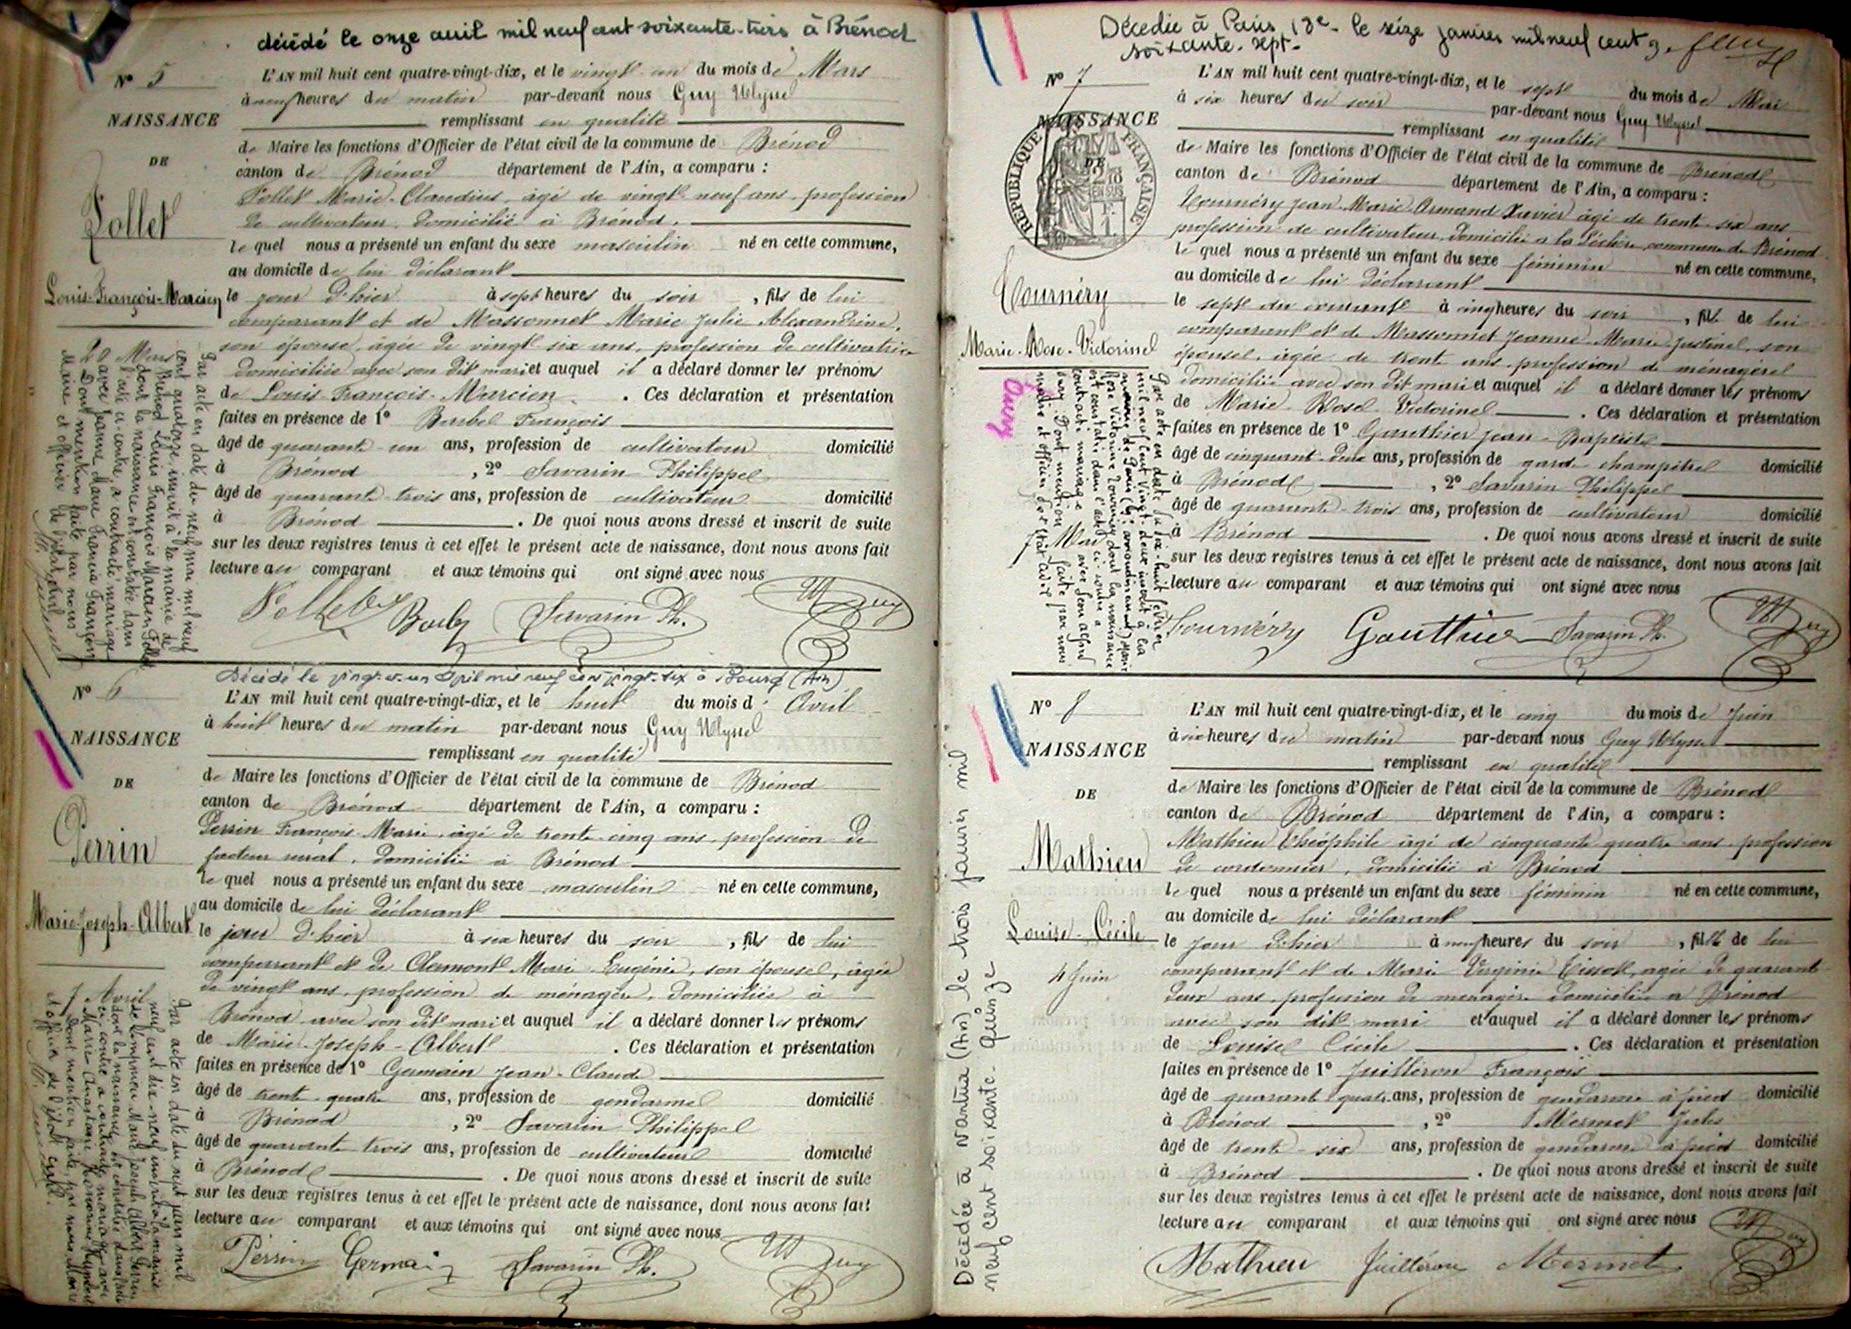 décédé le onze avril mil neuf cent soixante-trois à Brénod
N° 5
NAISSANCE
DE
Follet
Louis-François-Marcien
L'AN mil huit cent quatre-vingt-dix, et le vingt un du mois de Mars
à neuf heures du matin par-devant nous Guy Ulysse
remplissant en qualité
de Maire les fonctions d'Officier de l'état civil de la commune de Brénod
canton de Brénod département de l'Ain, a comparu :
Follet Marie Claudius, âgé de vingt neuf ans, profession
de cultivateur, domicilié à Brénod,
le quel nous a présenté un enfant du sexe masculin né en cette commune,
au domicile de lui déclarant
le jour d'hier à sept heures du soir, fils de lui
comparant et de Massonnet Marie Julie Alexandrine,
son épouse, âgée de vingt six ans, profession de cultivatrice
domiciliée avec son dit mari et auquel il a déclaré donner les prénoms
de Louis François Marcien. Ces déclaration et présentation
faites en présence de 1° François
âgé de quarante un ans, profession de cultivateur domicilié
à Brénod, 2° Savarin Philippe
âgé de quarante trois ans, profession de cultivateur domicilié
à Brénod. De quoi nous avons dressé et inscrit de suite
sur les deux registres tenus à cet effet le présent acte de naissance, dont nous avons fait
lecture au comparant et aux témoins qui ont signé avec nous
Savarin Ph. Guy
Par acte en date du neuf mai mil neuf
cent quatorze inscrit à la mairie de
Brénod Louis François Marcien Follet
dont la naissance est constatée dans
l'acte ci-contre, a contracté mariage
avec Jeanne Marie Francia Françon
Dont mention faite par nous
Maire et officier de l'état civil
20 Mars
N° 6
NAISSANCE
DE
Perrin
Marie-Joseph-Albert
Décédé le vingt-et-un Avril mil neuf cent vingt-six à Bourg (Ain)
L'AN mil huit cent quatre-vingt-dix, et le huit du mois d'Avril
à huit heures du matin par-devant nous Guy Ulysse
remplissant en qualité
de Maire les fonctions d'Officier de l'état civil de la commune de Brénod
canton de Brénod département de l'Ain, a comparu :
Perrin François Marie, âgé de trente cinq ans, profession de
facteur rural, domicilié à Brénod
le quel nous a présenté un enfant du sexe masculin né en cette commune,
au domicile de lui déclarant
le jour d'hier à six heures du soir, fils de lui
comparant et de Clermont Marie Eugénie, son épouse, âgée
de vingt ans, profession de ménagère, domiciliée à
Brénod avec son dit mari et auquel il a déclaré donner les prénoms
de Marie-Joseph-Albert. Ces déclaration et présentation
faites en présence de 1° Germain Jean-Claude
âgé de trente quatre ans, profession de gendarme domicilié
à Brénod, 2° Savarin Philippe
âgé de quarante trois ans, profession de cultivateur domicilié
à Brénod. De quoi nous avons dressé et inscrit de suite
sur les deux registres tenus à cet effet le présent acte de naissance, dont nous avons fait
lecture au comparant et aux témoins qui ont signé avec nous
Perrin Germain Savarin Ph. Guy
7 Avril
Par acte en date du sept juin mil
neuf cent dix-neuf inscrit à la mairie
Marie Joseph Albert Perrin
dont la naissance est constatée dans l'acte
ci-contre a contracté mariage avec
Marie
Dont mention faite par nous, Maire
officier de l'état civil.
Décédée à Paris 13e - le seize janvier mil neuf cent
soixante-sept-
N° 7
NAISSANCE
DE
RÉPUBLIQUE FRANÇAISE
Tournéry
Marie-Rose-Victorine
L'AN mil huit cent quatre-vingt-dix, et le sept du mois de Mai
à six heures du soir par-devant nous Guy Ulysse
remplissant en qualité
de Maire les fonctions d'Officier de l'état civil de la commune de Brénod
canton de Brénod département de l'Ain, a comparu :
Tournéry Jean-Marie Armand Xavier âgé de trente six ans
profession de cultivateur, domicilié à la commune de Brénod
le quel nous a présenté un enfant du sexe féminin né en cette commune,
au domicile de lui déclarant
le sept du courant à cinq heures du soir, fille de lui
comparant et de Massonnet Jeanne Marie Justine, son
épouse, âgée de trente ans, profession de ménagère
domiciliée avec son dit mari et auquel il a déclaré donner les prénoms
de Marie Rose Victorine. Ces déclaration et présentation
faites en présence de 1° Gauthier Jean-Baptiste
âgé de cinquante deux ans, profession de garde champêtre domicilié
à Brénod, 2° Savarin Philippe
âgé de quarante trois ans, profession de cultivateur domicilié
à Brénod. De quoi nous avons dressé et inscrit de suite
sur les deux registres tenus à cet effet le présent acte de naissance, dont nous avons fait
lecture au comparant et aux témoins qui ont signé avec nous
Tournéry Gauthier Savarin Ph. Guy
7 Mai
Par acte en date du dix-huit février
mil neuf cent vingt-deux inscrit à la
mairie de Paris arrondissement) Marie
Rose Victorine Tournéry dont la naissance
est constatée dans l'acte ci-contre a
contracté mariage avec
Dont mention faite par nous
maire et officier de l'état civil
N° 8
NAISSANCE
DE
Mathieu
Louise-Cécile
4 Juin
Décédée à Nantua (Ain) le trois janvier mil
neuf cent soixante-quinze
L'AN mil huit cent quatre-vingt-dix, et le cinq du mois de Juin
à six heures du matin par-devant nous Guy Ulysse
remplissant en qualité
de Maire les fonctions d'Officier de l'état civil de la commune de Brénod
canton de Brénod département de l'Ain, a comparu :
Mathieu Théophile âgé de cinquante quatre ans, profession
de cordonnier, domicilié à Brénod
le quel nous a présenté un enfant du sexe féminin né en cette commune,
au domicile de lui déclarant
le jour d'hier à neuf heures du soir, fille de lui
comparant et de Marie Virginie Tissot, âgée de quarante
deux ans, profession de ménagère domiciliée à Brénod
avec son dit mari et auquel il a déclaré donner les prénoms
de Louise Cécile. Ces déclaration et présentation
faites en présence de 1° Juilléron François
âgé de quarante quatre ans, profession de gendarme à pied domicilié
à Brénod, 2° Mermet Jules
âgé de trente six ans, profession de gendarme à pied domicilié
à Brénod. De quoi nous avons dressé et inscrit de suite
sur les deux registres tenus à cet effet le présent acte de naissance, dont nous avons fait
lecture au comparant et aux témoins qui ont signé avec nous
Mathieu Juilléron Mermet Guy